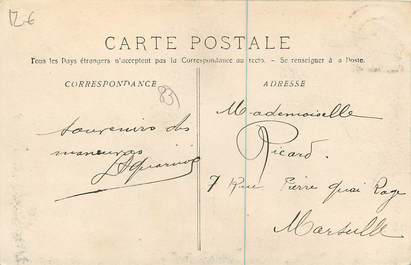 12€
CARTE POSTALE
Tous les Pays étrangers n'acceptent pas la Correspondance au recto. - Se renseigner à la Poste.
CORRESPONDANCE
ADRESSE
83
souvenirs des
manœuvres
Mademoiselle
Ricard.
7 Rue Pierre
Marseille